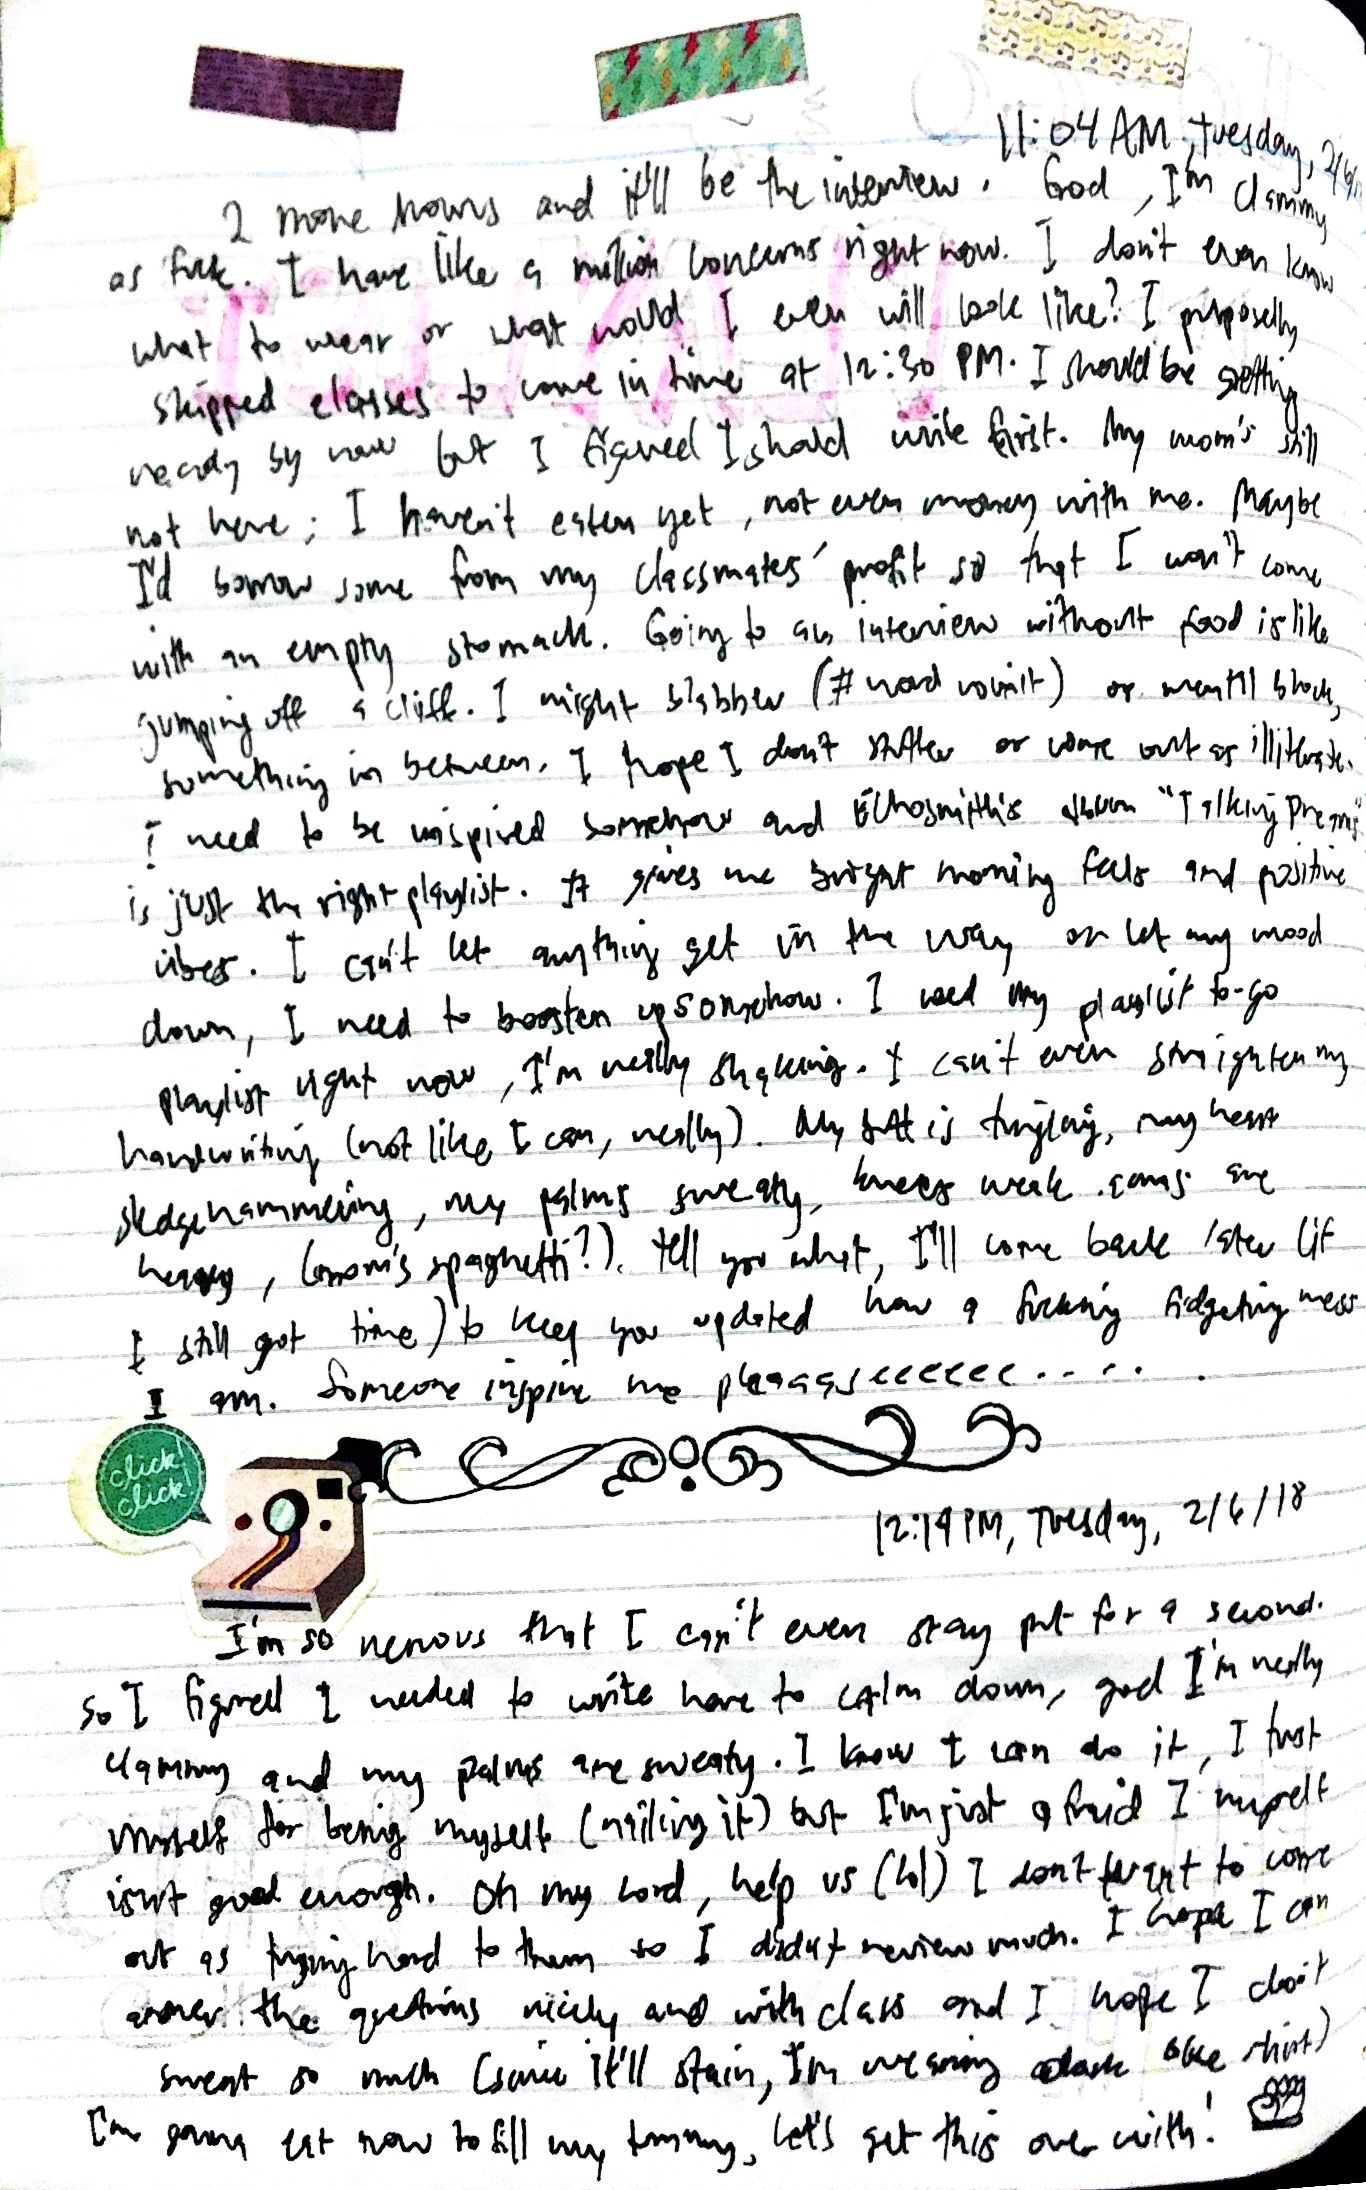 11:04 AM, Tuesday, 2/6/
2 more hours and it'll be the interview. God, I'm clammy
as fuck. I have like a million concerns right now. I don't even know
what to wear or what would I even will look like? I purposely
skipped classes to come in time at 12:30 PM. I should be getting
ready by now but I figured I should write first. My mom's still
not here; I haven't eaten yet, not even money with me. Maybe
I'd borrow some from my classmates' profit so that I won't come
with an empty stomach. Going to an interview without food is like
jumping off a cliff. I might blabber (#word vomit) or mentll block,
something in between. I hope I don't stutter or come out as illiterate.
I need to be inspired somehow and Echosmith's album "Talking Dreams"
is just the right playlist. It gives me bright morning feels and positive
vibes. I can't let anything get in the way or let my mood
down, I need to boosten up somehow. I need my playlist to-go
playlist right now, I'm really shaking. I can't even straighten my
handwriting (not like I can, really). My butt is tingling, my heart
sledgehammering, my palms sweaty, knees weak, arms are
heavy, (mom's spaghetti?). Tell you what, I'll come back later (if
I still got time) to keep you updated how a fucking fidgeting mess
I am. Someone inspire me pleaaaseeeeeee.....
click!
click!
12:19 PM, Tuesday, 2/6/18
I'm so nervous that I can't even stay put for a second.
So I figured I needed to write here to calm down, god I'm really
clammy and my palms are sweaty. I know I can do it, I trust
myself for being myself (nailing it) but I'm just afraid I myself
isn't good enough. Oh my Lord, help us (lol) I don't want to come
out as trying hard to them so I didn't review much. I hope I can
answer the questions nicely and with class and I hope I don't
sweat so much (since it'll stain, I'm wearing shirt)
I'm gonna eat now to fill my tummy, let's get this over with!